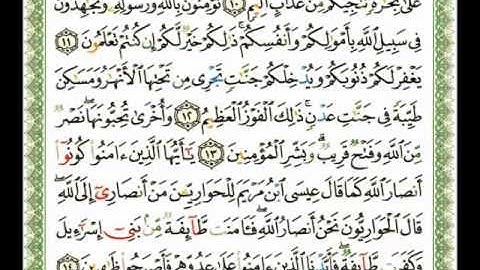 عَلَىٰ تِجَٰرَةٍ تُنجِيكُم مِّنْ عَذَابٍ أَلِيمٍ ١٠ تُؤْمِنُونَ بِٱللَّهِ وَرَسُولِهِۦ وَتُجَٰهِدُونَ
فِى سَبِيلِ ٱللَّهِ بِأَمْوَٰلِكُمْ وَأَنفُسِكُمْ ذَٰلِكُمْ خَيْرٌ لَّكُمْ إِن كُنتُمْ تَعْلَمُونَ ١١
يَغْفِرْ لَكُمْ ذُنُوبَكُمْ وَيُدْخِلْكُمْ جَنَّٰتٍ تَجْرِى مِن تَحْتِهَا ٱلْأَنْهَٰرُ وَمَسَٰكِنَ
طَيِّبَةً فِى جَنَّٰتِ عَدْنٍ ذَٰلِكَ ٱلْفَوْزُ ٱلْعَظِيمُ ١٢ وَأُخْرَىٰ تُحِبُّونَهَا نَصْرٌ
مِّنَ ٱللَّهِ وَفَتْحٌ قَرِيبٌ وَبَشِّرِ ٱلْمُؤْمِنِينَ ١٣ يَٰٓأَيُّهَا ٱلَّذِينَ ءَامَنُوا۟ كُونُوٓا۟
أَنصَارَ ٱللَّهِ كَمَا قَالَ عِيسَى ٱبْنُ مَرْيَمَ لِلْحَوَارِيِّۦنَ مَنْ أَنصَارِىٓ إِلَى ٱللَّهِ
قَالَ ٱلْحَوَارِيُّونَ نَحْنُ أَنصَارُ ٱللَّهِ فَـَٔامَنَت طَّآئِفَةٌ مِّنۢ بَنِىٓ إِسْرَٰٓءِيلَ
وَكَفَرَت طَّآئِفَةٌ فَأَيَّدْنَا ٱلَّذِينَ ءَامَنُوا۟ عَلَىٰ عَدُوِّهِمْ فَأَصْبَحُوا۟ ظَٰهِرِينَ ١٤